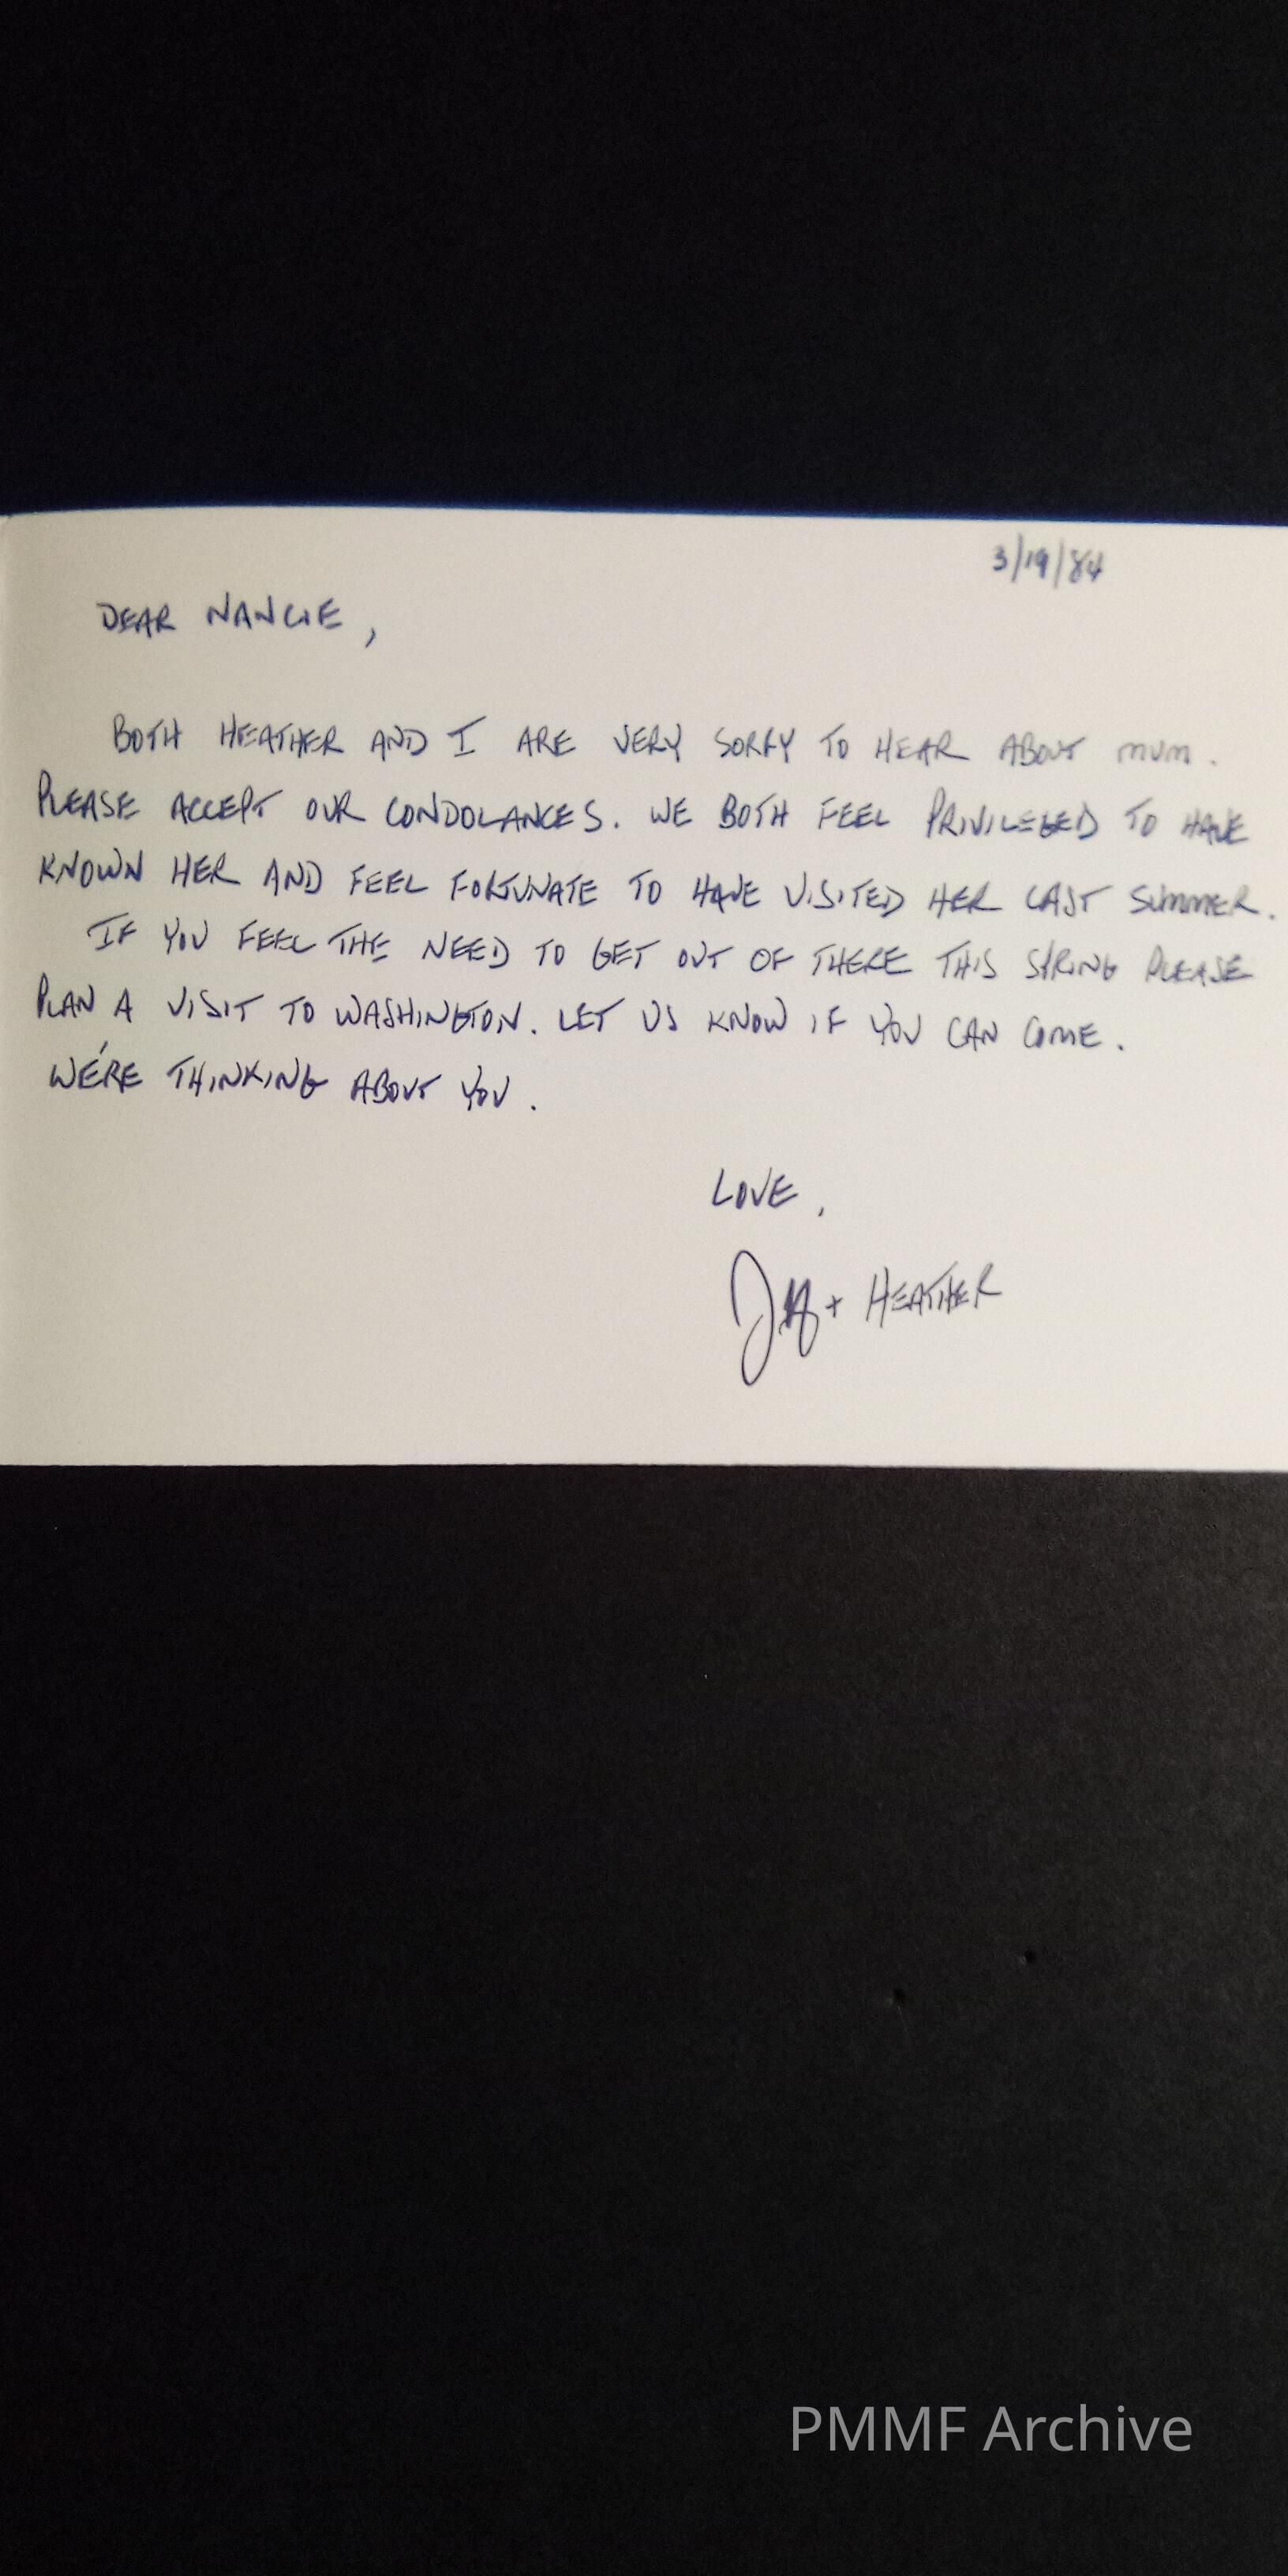 3/19/84
DEAR NANCIE,
BOTH HEATHER AND I ARE VERY SORRY TO HEAR ABOUT MUM.
PLEASE ACCEPT OUR CONDOLANCES. WE BOTH FEEL PRIVILEGED TO HAVE
KNOWN HER AND FEEL FORTUNATE TO HAVE VISITED HER LAST SUMMER.
IF YOU FEEL THE NEED TO GET OUT OF THERE THIS SPRING PLEASE
PLAN A VISIT TO WASHINGTON. LET US KNOW IF YOU CAN COME.
WE'RE THINKING ABOUT YOU.
LOVE,
+ HEATHER
PMMF Archive